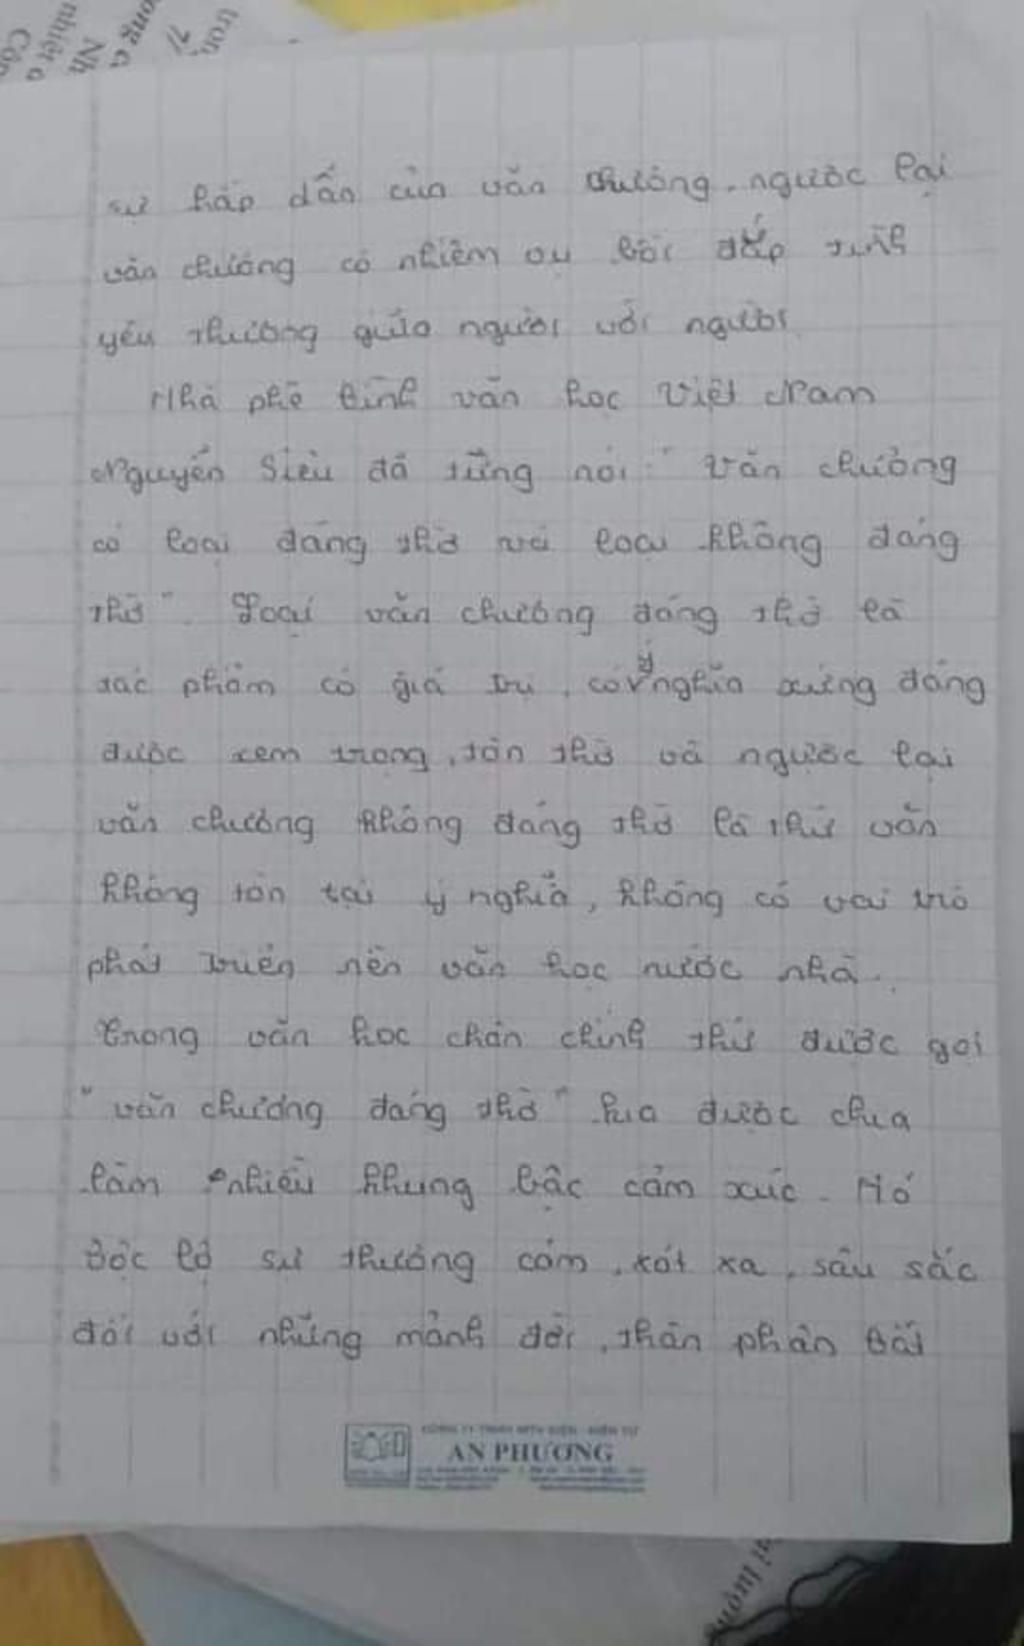 trong
7/
ong c
Nh
nhiệt
sự hấp dẫn của văn chương, ngược lại
văn chương có nhiệm vụ bồi đắp tình
yêu thương giữa người với người
Nhà phê bình văn học Việt Nam
Nguyễn Siêu đã từng nói: "Văn chương
có loại đáng thờ và loại không đáng
thờ". Loại văn chương đáng thờ là
tác phẩm có giá trị, có ý nghĩa xứng đáng
được xem trọng, tôn thờ và ngược lại
văn chương không đáng thờ là thứ văn
không tồn tại ý nghĩa, không có vai trò
phát triển nền văn học nước nhà.
Trong văn học chân chính thứ được gọi
"văn chương đáng thờ" lưa được chưa
lắm nhiều khung bậc cảm xúc. Nó
bộc lộ sự thương cảm, xót xa, sâu sắc
đối với những mảnh đời, thân phận bất
AN PHƯƠNG